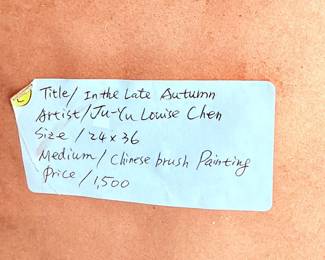 Title/ In the Late Autumn
Artist/Ju-Yu Louise Chen
Size / 24x36
Medium/ Chinese brush Painting
Price /1,500